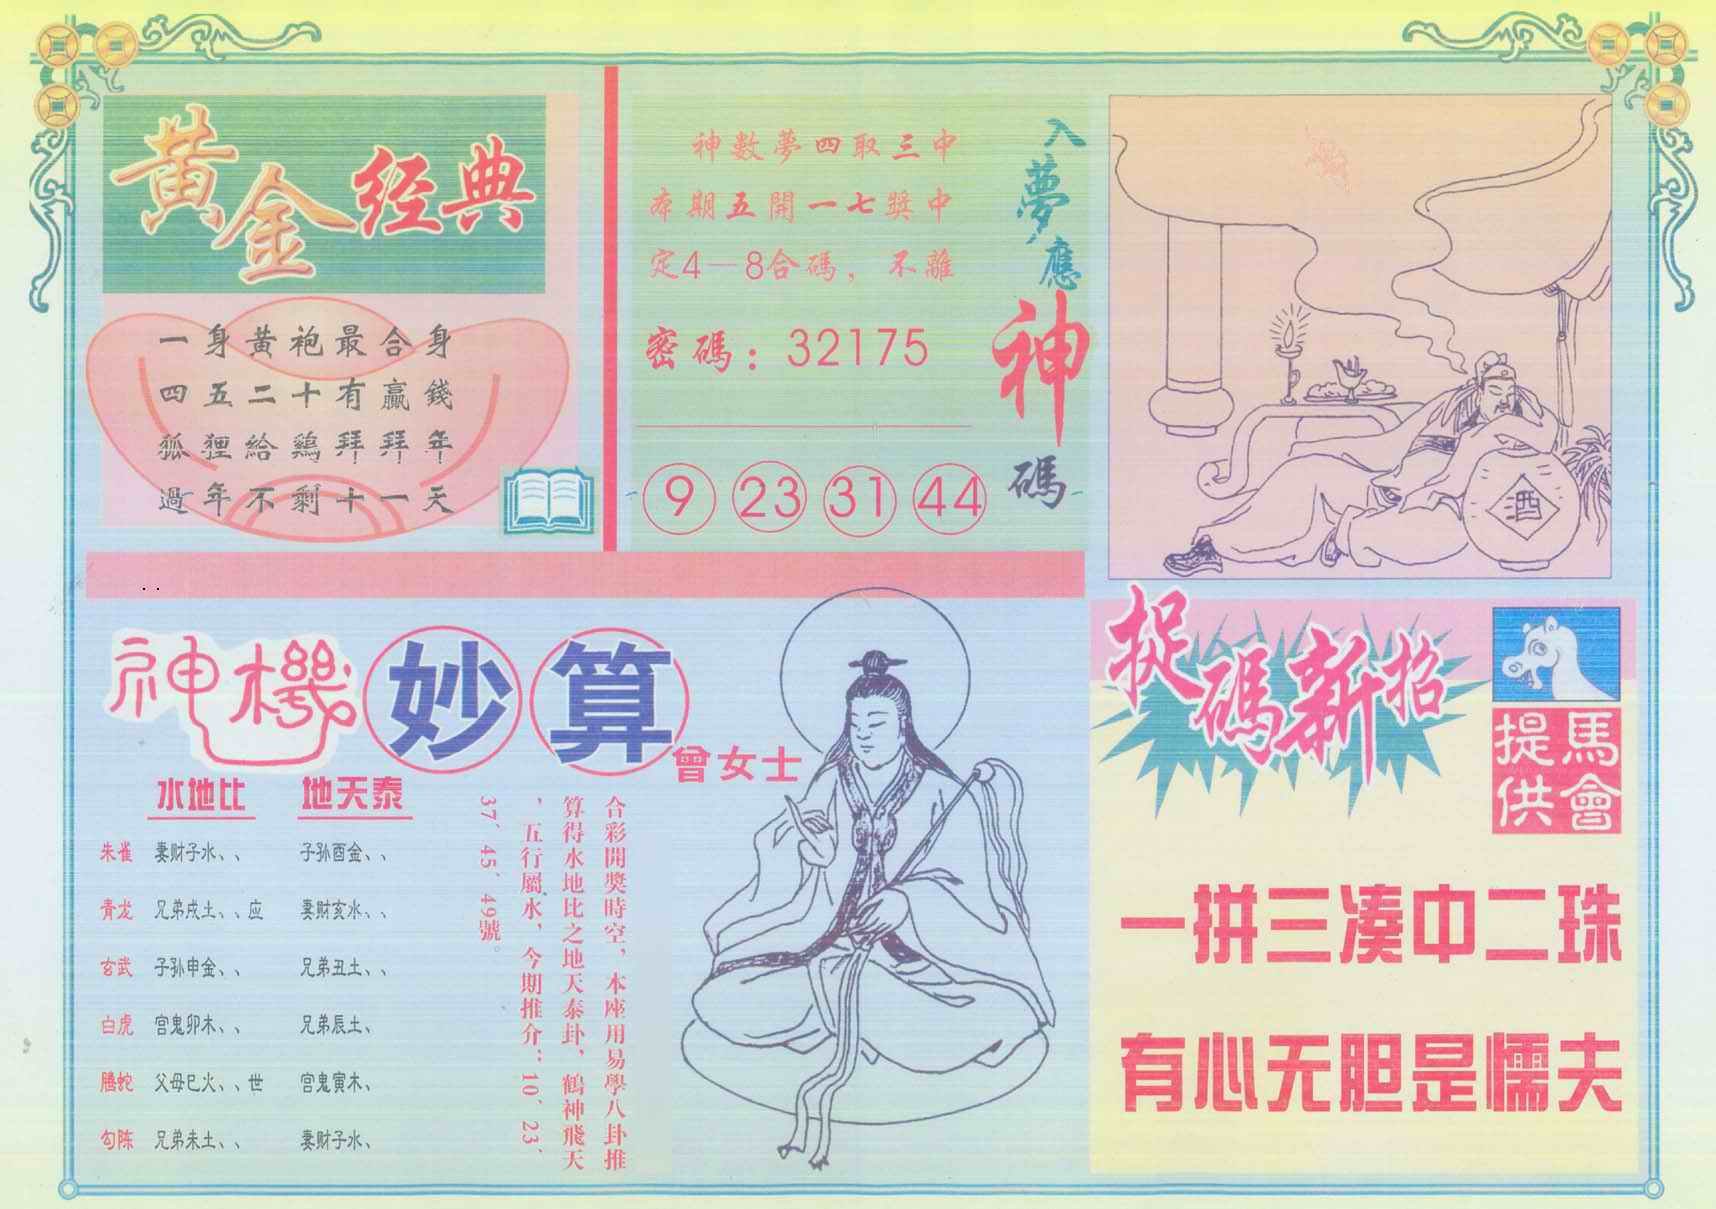 黃金经典
一身黃袍最合身
四五二十有贏錢
狐狸給鷄拜拜年
過年不剩十一天
神數夢四取三中
本期五開一七獎中
定4－8合碼，不離
密碼：32175
9 23 31 44
入夢應神碼
酒
神機妙算
曾女士
水地比 地天泰
朱雀 妻财子水、、 子孙酉金、、
青龙 兄弟戌土、、应 妻财亥水、、
玄武 子孙申金、、 兄弟丑土、、
白虎 官鬼卯木、、 兄弟辰土、
腾蛇 父母巳火、、世 官鬼寅木、
勾陈 兄弟未土、、 妻财子水、
合彩開獎時空，本座用易學八卦推
算得水地比之地天泰卦，鶴神飛天
，五行屬水，今期推介：10、23、
37、45、49號。
捉碼新招
馬會
提供
一拼三凑中二珠
有心无胆是懦夫